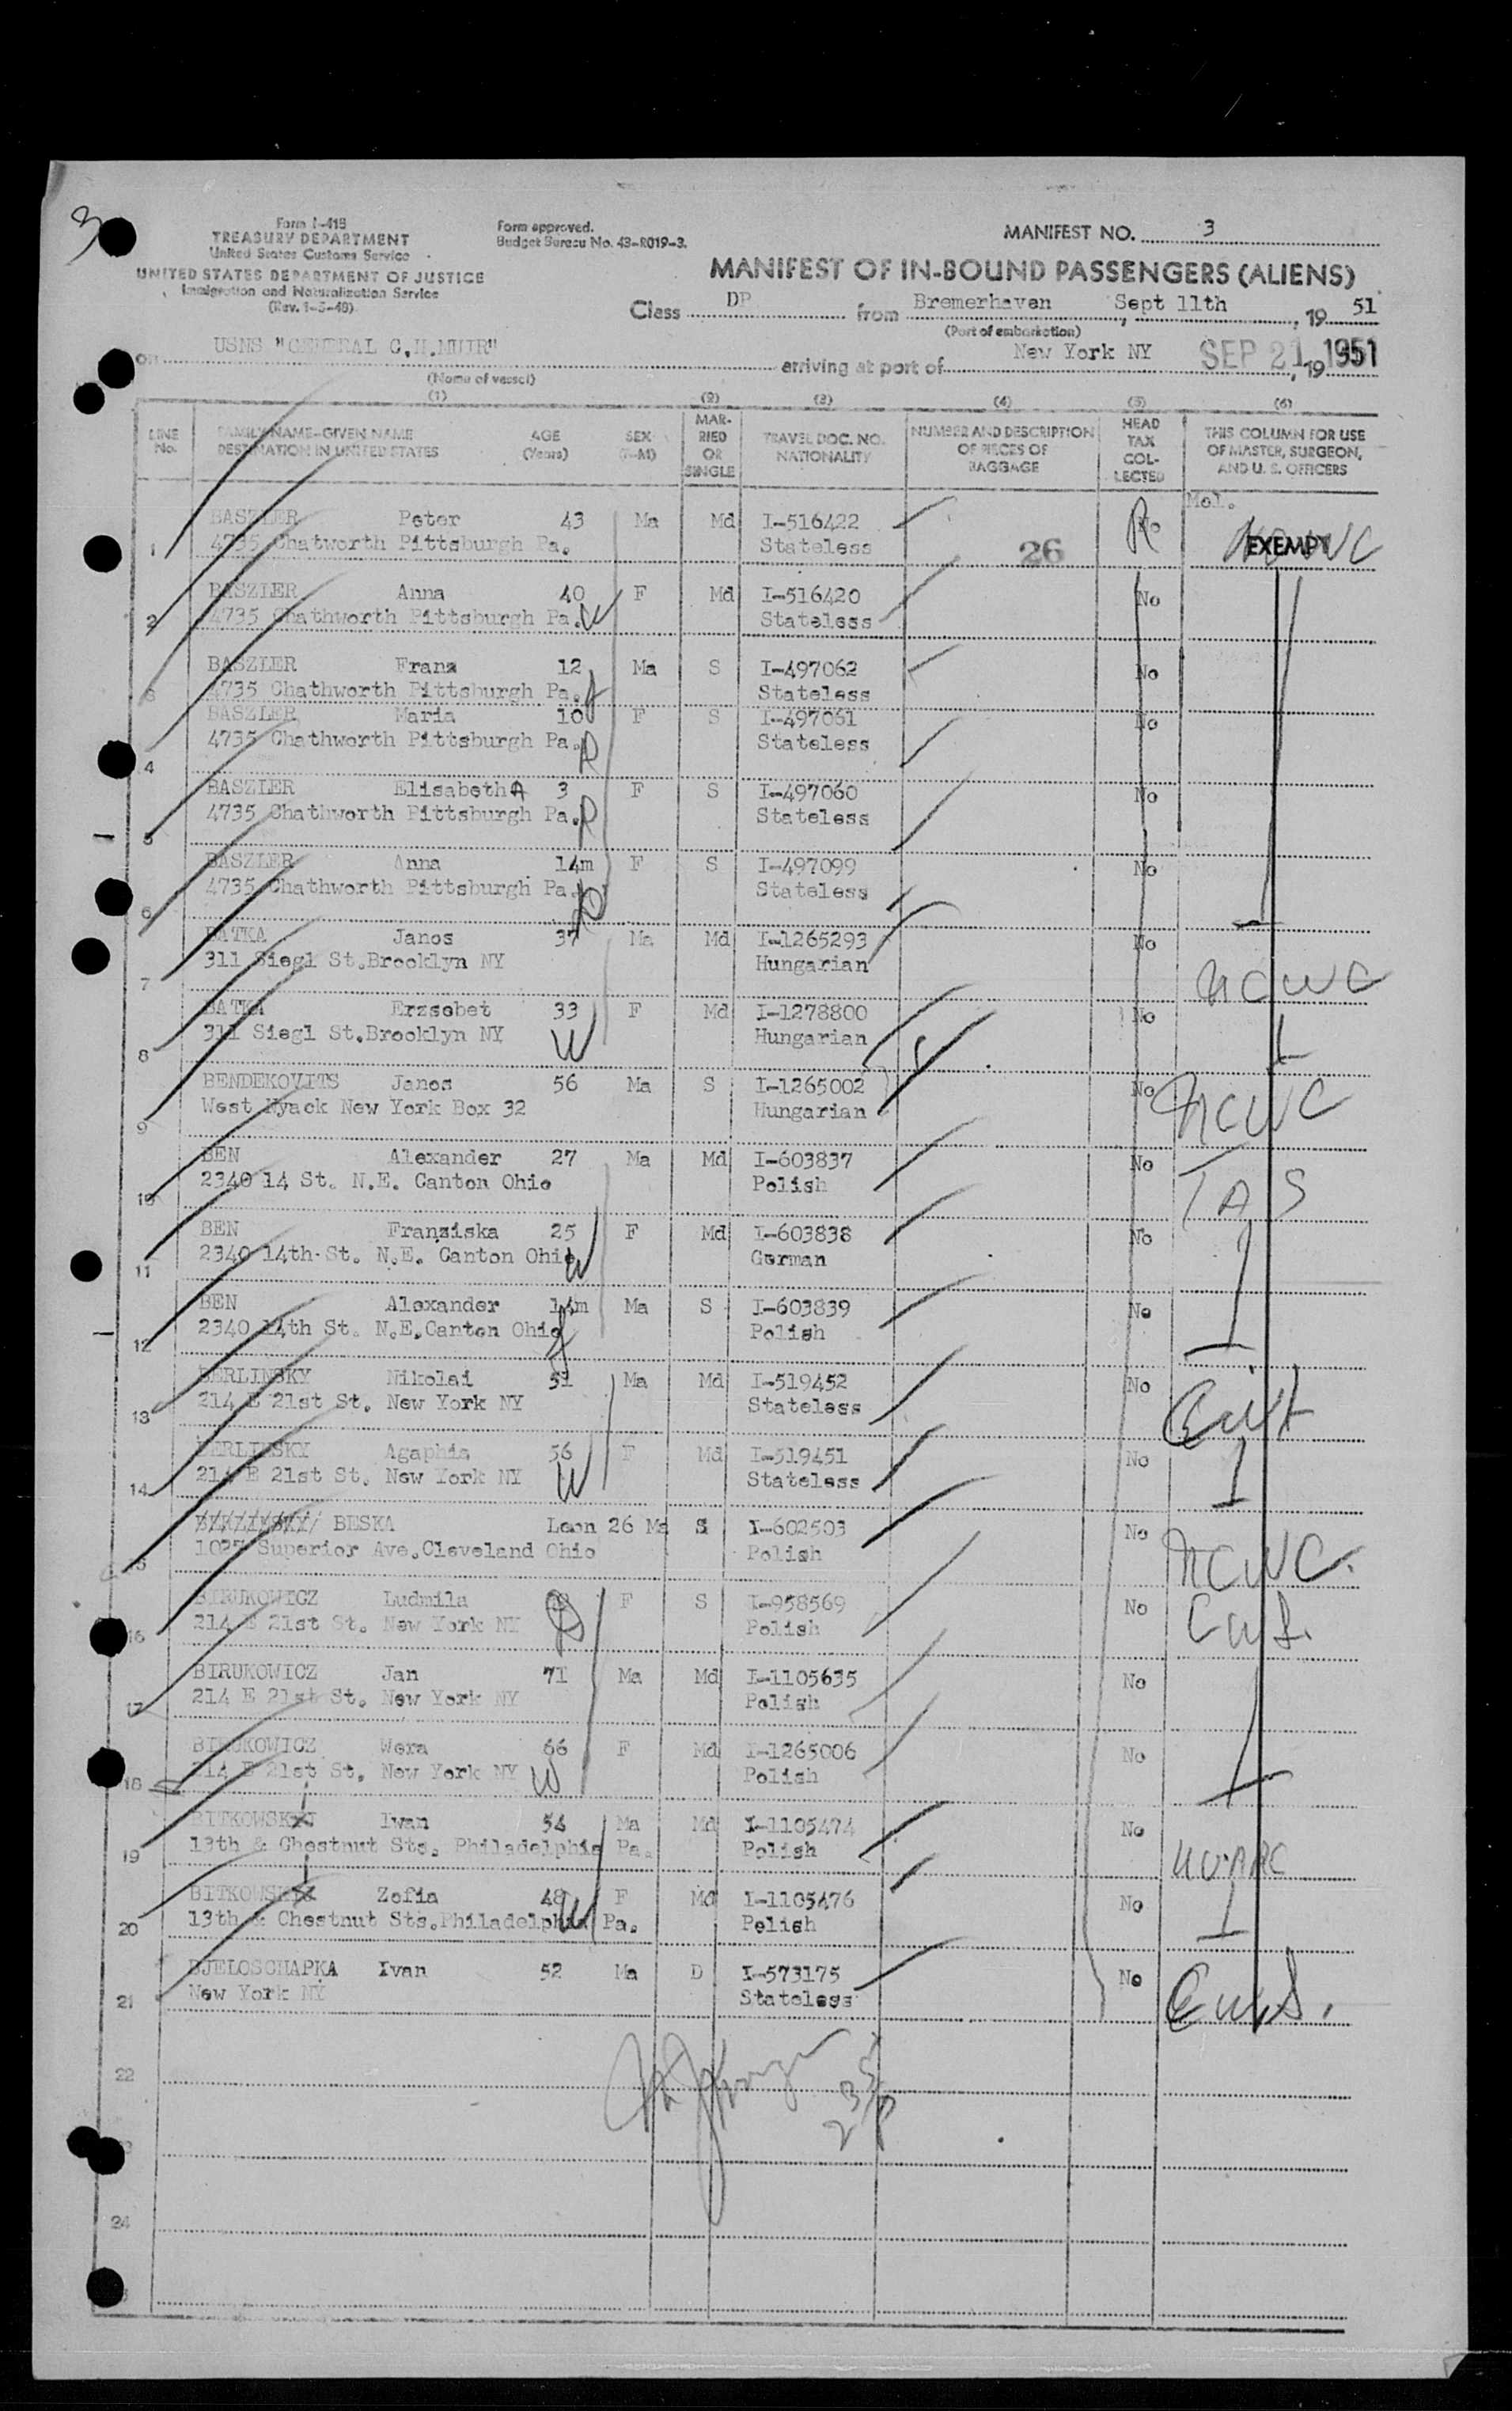 3
Form I-418
TREASURY DEPARTMENT
United States Customs Service
UNITED STATES DEPARTMENT OF JUSTICE
Immigration and Naturalization Service
(Rev. 1-5-48)
Form approved.
Budget Bureau No. 43-R019-3.
MANIFEST NO. 3
MANIFEST OF IN-BOUND PASSENGERS (ALIENS)
Class DP from Bremerhaven, Sept 11th, 19 51
(Port of embarkation)
on USNS "GENERAL C.H.MUIR" arriving at port of New York NY SEP 21, 19 1951
(Name of vessel)
(1) (2) (3) (4) (5) (6)
LINE No. FAMILY NAME-GIVEN NAME DESTINATION IN UNITED STATES AGE (Years) SEX (F-M) MAR-RIED OR SINGLE TRAVEL DOC. NO. NATIONALITY NUMBER AND DESCRIPTION OF PIECES OF BAGGAGE HEAD TAX COL-LECTED THIS COLUMN FOR USE OF MASTER, SURGEON, AND U. S. OFFICERS
BASZLER Peter 43 Ma Md I-516422 No
1 4735 Chatworth Pittsburgh Pa. Stateless 26 EXEMPT NCWC
BASZLER Anna 40 F Md I-516420 No
2 4735 Chathworth Pittsburgh Pa. W Stateless
BASZLER Franz 12 Ma S I-497062 No
3 4735 Chathworth Pittsburgh Pa. Stateless
BASZLER Maria 10 F S I-497061 No
4 4735 Chathworth Pittsburgh Pa. Stateless
BASZLER Elisabeth A 3 F S I-497060 No
5 4735 Chathworth Pittsburgh Pa. Stateless
BASZLER Anna 14m F S I-497099 No
6 4735 Chathworth Pittsburgh Pa. Stateless
BATKA Janos 37 Ma Md I-1265293 No
7 311 Siegl St.Brooklyn NY Hungarian NCWC
BATKA Erzsebet 33 F Md I-1278800 No
8 311 Siegl St.Brooklyn NY W Hungarian
BENDEKOVITS Janos 56 Ma S I-1265002 No
9 West Nyack New York Box 32 Hungarian NCWC
BEN Alexander 27 Ma Md I-603837 No
10 2340 14 St. N.E. Canton Ohio Polish TAS
BEN Franziska 25 F Md I-603838 No
11 2340 14th St. N.E. Canton Ohio W German
BEN Alexander 14m Ma S I-603839 No
12 2340 14th St. N.E.Canton Ohio Polish
BERLINSKY Nikolai 51 Ma Md I-519452 No
13 214 E 21st St. New York NY Stateless
BERLINSKY Agaphia 56 F Md I-519451 No
14 214 E 21st St. New York NY W Stateless
BERLINSKY BESKA Leon 26 Ma S I-602503 No
15 Superior Ave.Cleveland Ohio Polish NCWC.
BIRUKOWICZ Ludmila F S I-958569 No
16 214 E 21st St. New York NY Polish
BIRUKOWICZ Jan 71 Ma Md I-1105635 No
17 214 E 21st St. New York NY Polish
BIRUKOWICZ Wera 66 F Md I-1265006 No
18 214 E 21st St. New York NY W Polish
BITKOWSKI Ivan 54 Ma Md I-1105474 No
19 13th & Chestnut Sts. Philadelphia Pa. Polish
BITKOWSKI Zofia 48 F Md I-1105476 No
20 13th & Chestnut Sts.Philadelphia Pa. W Polish
BJELOSCHAPKA Ivan 52 Ma D I-573175 No
21 New York NY Stateless
22
24